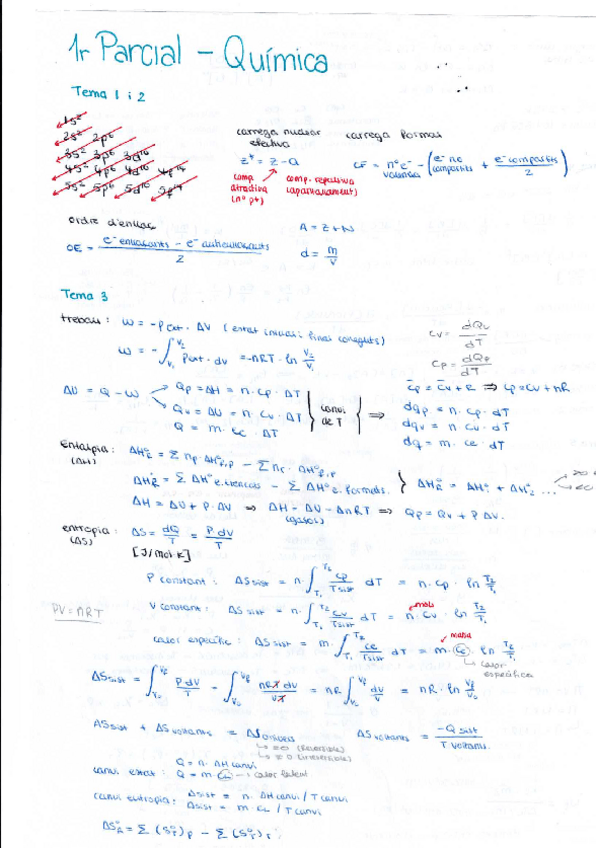 1r Parcial - Química
Tema 1 i 2
1s²
2s² 2p⁶
3s² 3p⁶ 3d¹⁰
4s² 4p⁶ 4d¹⁰ 4f¹⁴
5s² 5p⁶ 5d¹⁰ 5f¹⁴
carrega nuclear efectiva
z* = z - a
comp. atractiva (nº p+)
comp. repulsiva (apantanament)
carrega formal
CF = nº e⁻ valencia - (e⁻ no compartits + e⁻ compartits / 2)
ordre d'enllaç
OE = e⁻ enllaçants - e⁻ antienllaçants / 2
A = Z + N
d = m / V
Tema 3
treball: W = -Pext · ΔV (estat inicial i final coneguts)
W = -∫ V₁ V₂ Pext · dv = -nRT · ln V₂/V₁
Cv = dQv / dT
Cp = dQp / dT
ΔU = Q - W
Qp = ΔH = n · Cp · ΔT
Qv = ΔU = n · Cv · ΔT
Q = m · Ce · ΔT
canvi de T ⇒
C̄p = C̄v + R ⇒ Cp = Cv + nR
dqp = n · Cp · dT
dqv = n · Cv · dT
dq = m · ce · dT
Entalpia: (ΔH)
ΔH°R = Σ np · ΔH°f,p - Σ nr · ΔH°f,r
ΔH°R = Σ ΔH° e. trencats - Σ ΔH° e. formats.
ΔH°R = ΔH°₁ + ΔH°₂ ...
ΔH = ΔU + P · ΔV ⇒ ΔH = ΔU - ΔnRT ⇒ Qp = Qv + P ΔV.
(gasos)
entropia: (ΔS)
ΔS = dQ/T = P dV/T
[J/mol K]
P constant: ΔSsist = n · ∫ T₁ T₂ Cp/Tsist dT = n · Cp · ln T₂/T₁
PV = nRT
V constant: ΔSsist = n · ∫ T₁ T₂ Cv/Tsist dT = n · Cv · ln T₂/T₁
mols
calor específic: ΔSsist = m · ∫ T₁ T₂ ce/Tsist dT = m · Ce · ln T₂/T₁
massa
calor específica
ΔSsist = ∫ V₀ Vf P dV/T - ∫ V₀ Vf nRT dV/VT = nR ∫ V₀ Vf dV/V = nR · ln Vf/V₀
ΔSsist + ΔSvoltants = ΔSunivers
= 0 (Reversible)
≠ 0 (irreversible)
ΔSvoltants = -Q sist / T voltants.
canvi estat: Q = n · ΔH canvi
Q = m · CL → calor latent
canvi entropia: ΔSsist = n · ΔH canvi / T canvi
ΔSsist = m · CL / T canvi
ΔS°R = Σ (S°T)p - Σ (S°T)r